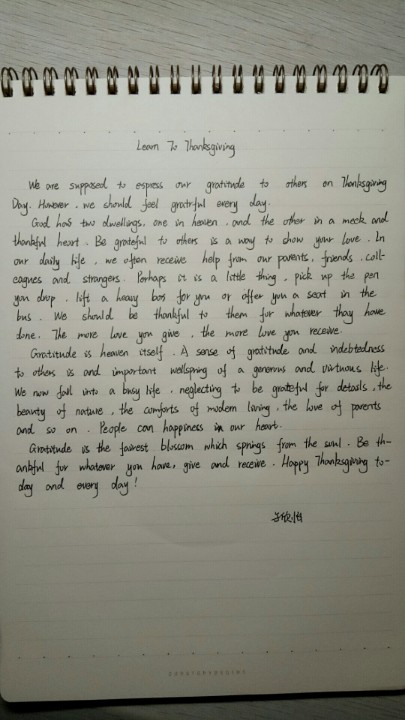 Learn To Thanksgiving
We are supposed to espress our gratitude to others on Thanksgiving
Day. However, we should feel gratrful every day.
God has two dwellings, one in heaven, and the other in a meck and
thankful heart. Be grateful to others is a way to show your love. In
our daily life, we often receive help from our parents, friends, coll-
eagnes and strangers. Perhaps it is a little thing, pick up the pen
you drop, lift a heavy bos for you or offer you a seat in the
bus. We should be thankful to them for whatever thay have
done. The more love you give, the more love you receive.
Gratitude is heaven itself. A sense of gratitude and indebtedness
to others is and important wellspring of a generous and virtuous life.
We now fall into a busy life, neglecting to be grateful for details, the
beauty of nature, the comforts of modern living, the love of parents
and so on. People can happiness in our heart.
Gratitude is the fairest blossom which springs from the soul. Be th-
ankful for whatever you have, give and receive. Happy Thanksgiving to-
day and every day!